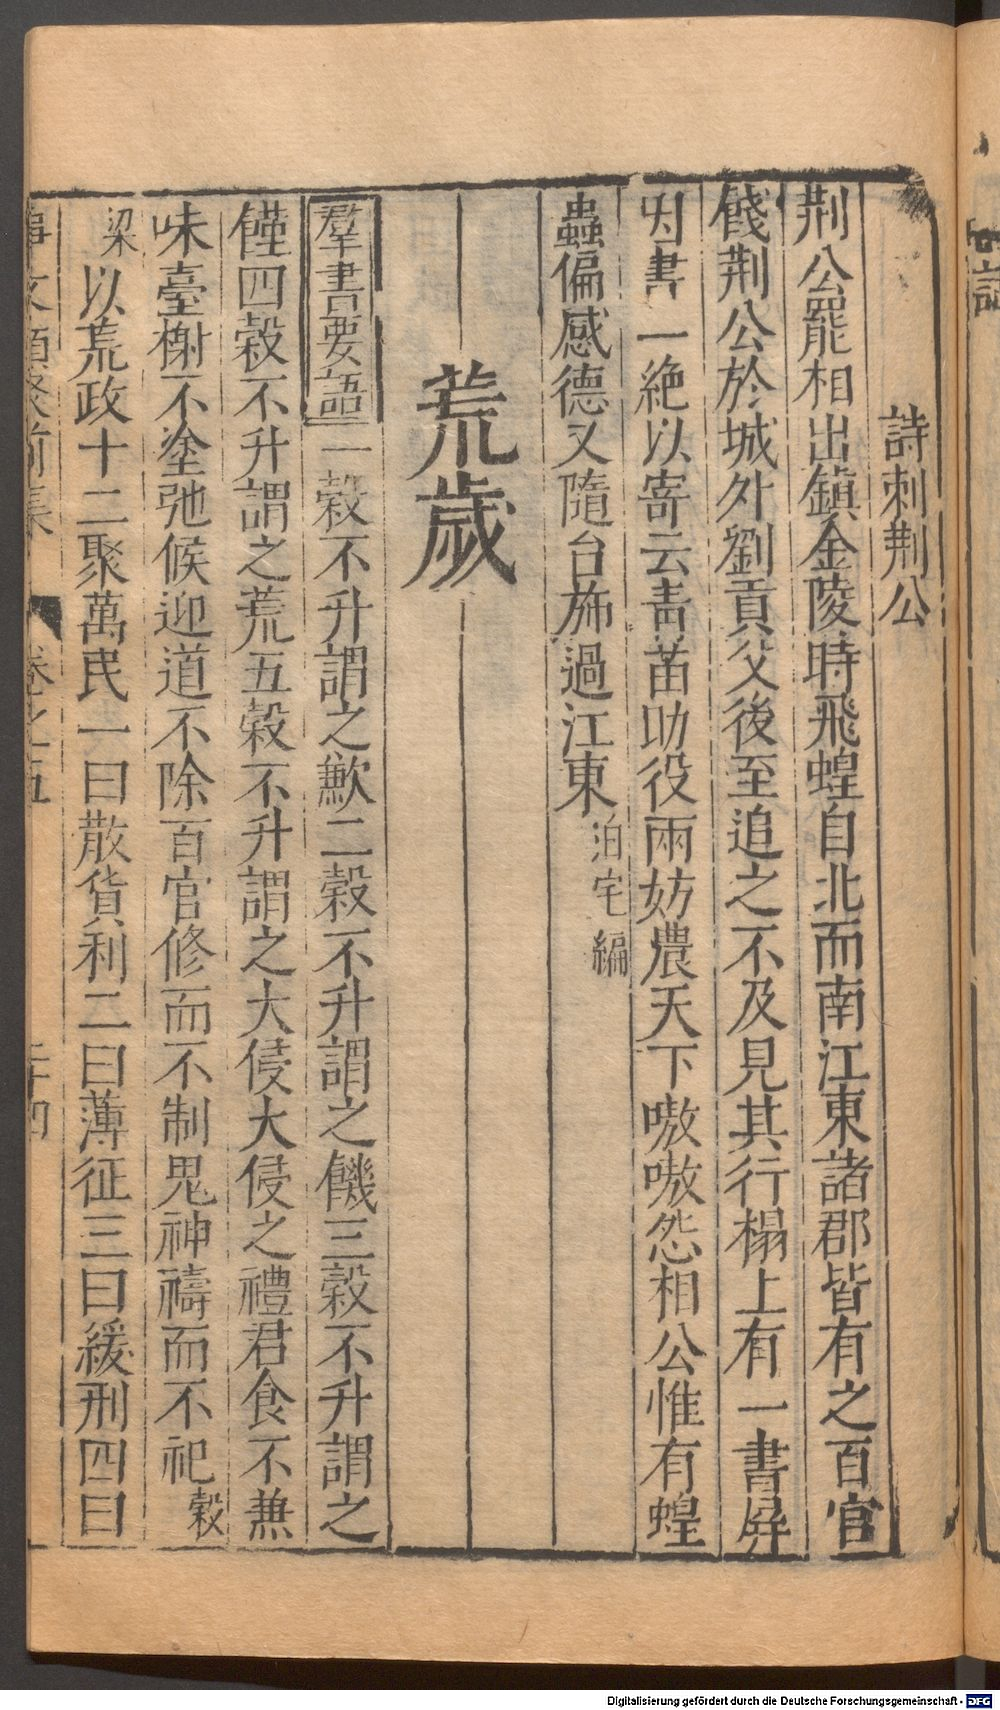 詩刺荆公
荆公罷相出鎮金陵時飛蝗自北而南江東諸郡皆有之百官
餞荆公於城外劉貢父後至追之不及見其行榻上有一書屏
因書一絶以寄云青苗助役兩妨農天下嗷嗷怨相公惟有蝗
蟲偏感德又隨台斾過江東泊宅編
荒歲
羣書要語一榖不升謂之歉二榖不升謂之饑三榖不升謂之
饉四榖不升謂之荒五榖不升謂之大侵大侵之禮君食不兼
味臺榭不塗弛候迎道不除百官修而不制鬼神禱而不祀榖
梁以荒政十二聚萬民一曰散貨利二曰薄征三曰緩刑四曰
事文類聚前集
卷之五
二十四
Digitalisierung gefördert durch die Deutsche Forschungsgemeinschaft - DFG